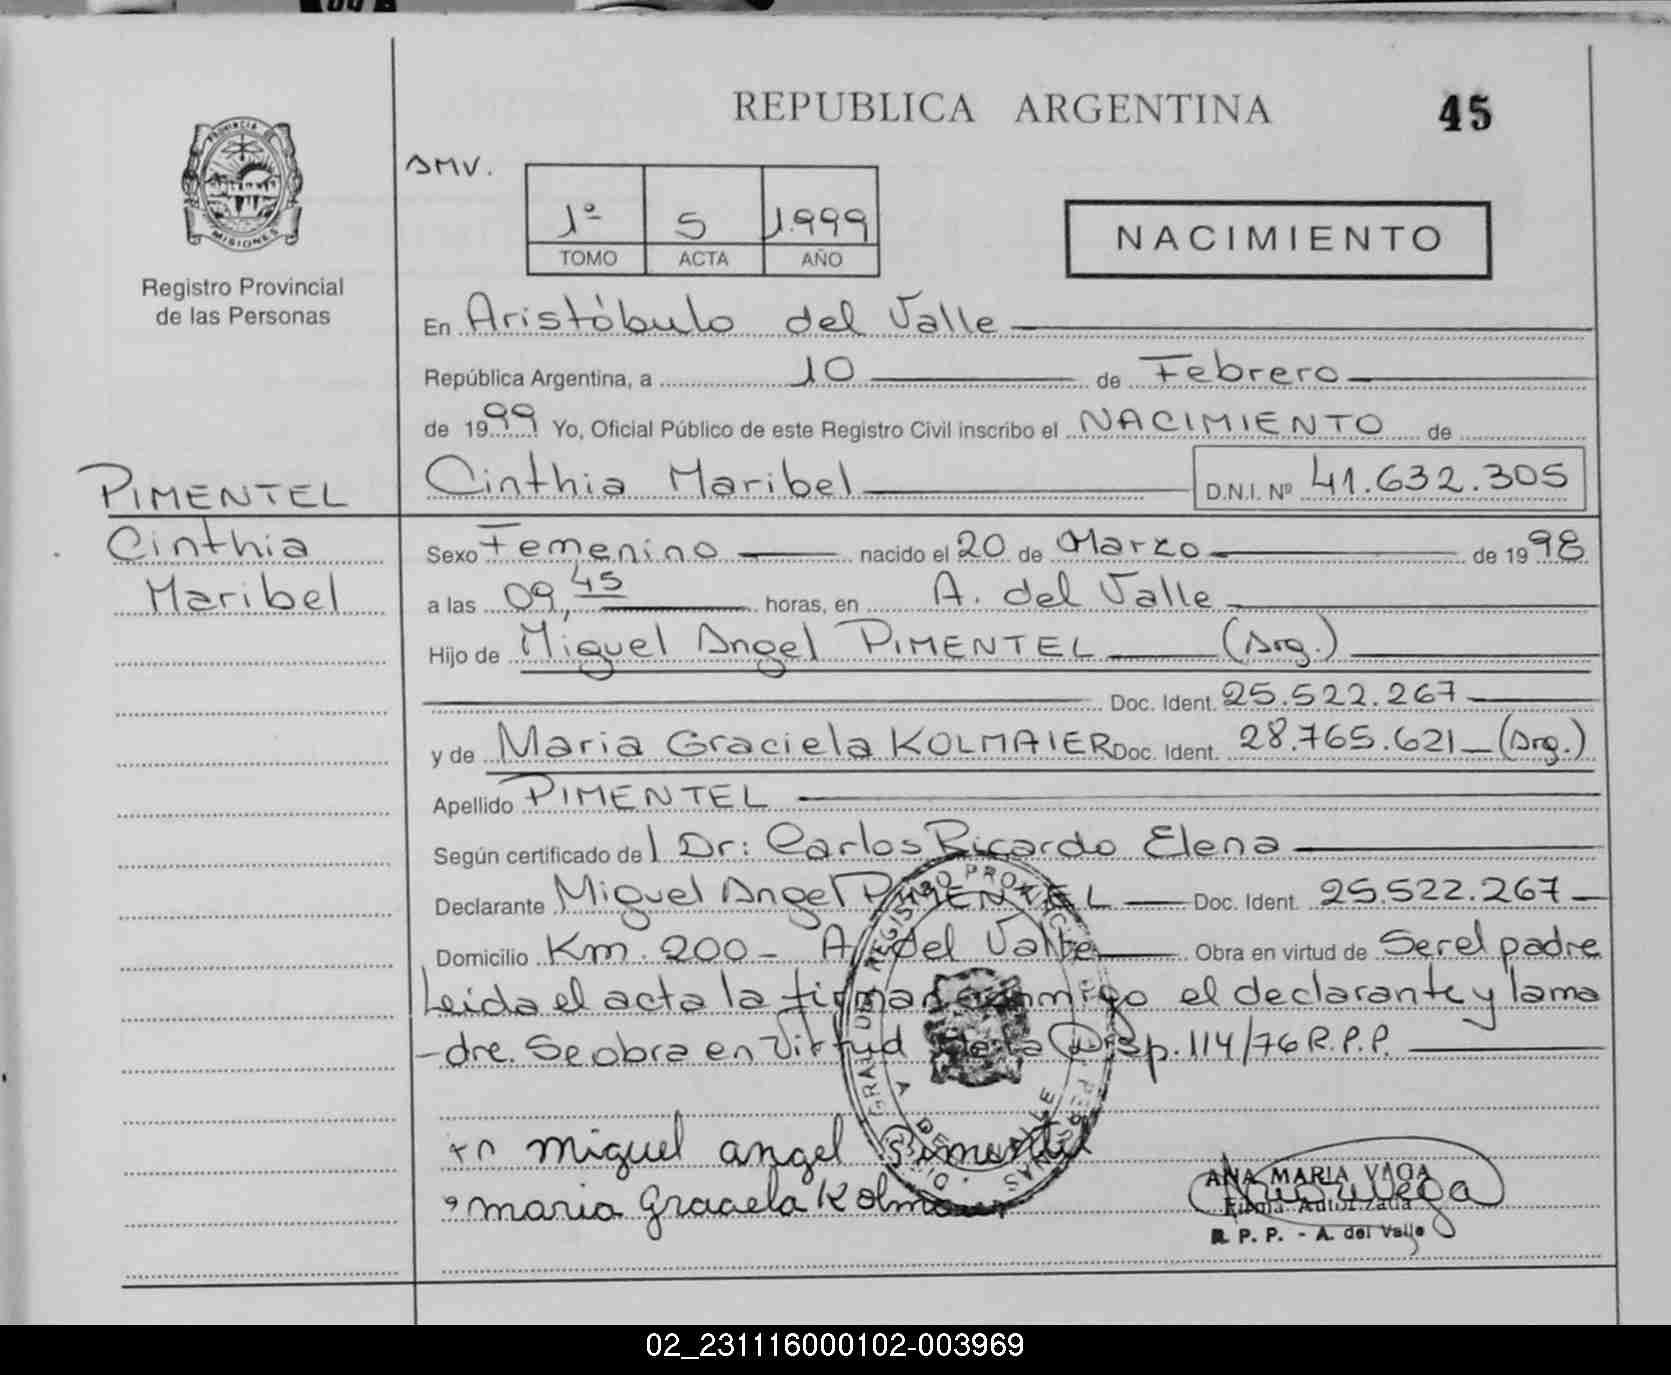 REPUBLICA ARGENTINA
45
PROVINCIA DE
MISIONES
Registro Provincial
de las Personas
SMV.
1º 5 1.999
TOMO ACTA AÑO
NACIMIENTO
En Aristóbulo del Valle
República Argentina, a 10 de Febrero
de 1999 Yo, Oficial Público de este Registro Civil inscribo el NACIMIENTO de
PIMENTEL
Cinthia
Maribel
Cinthia Maribel D.N.I. Nº 41.632.305
Sexo Femenino nacido el 20 de Marzo de 1998
a las 09,45 horas, en A. del Valle
Hijo de Miguel Angel PIMENTEL (Arg.)
Doc. Ident. 25.522.267
y de Maria Graciela KOLMAIER Doc. Ident. 28.765.621 (Arg.)
Apellido PIMENTEL
Según certificado del Dr: Carlos Ricardo Elena
Declarante Miguel Angel PIMENTEL Doc. Ident. 25.522.267
Domicilio Km. 200 - A. del Valle Obra en virtud de Ser el padre
Leida el acta la firman conmigo el declarante y la ma
-dre. Se obra en Virtud de la Disp. 114/76 R.P.P.
miguel angel Pimentel
maria Graciela Kolmaier
ANA MARIA VAGA
Firma Autorizada
R. P. P. - A. del Valle
02_231116000102-003969